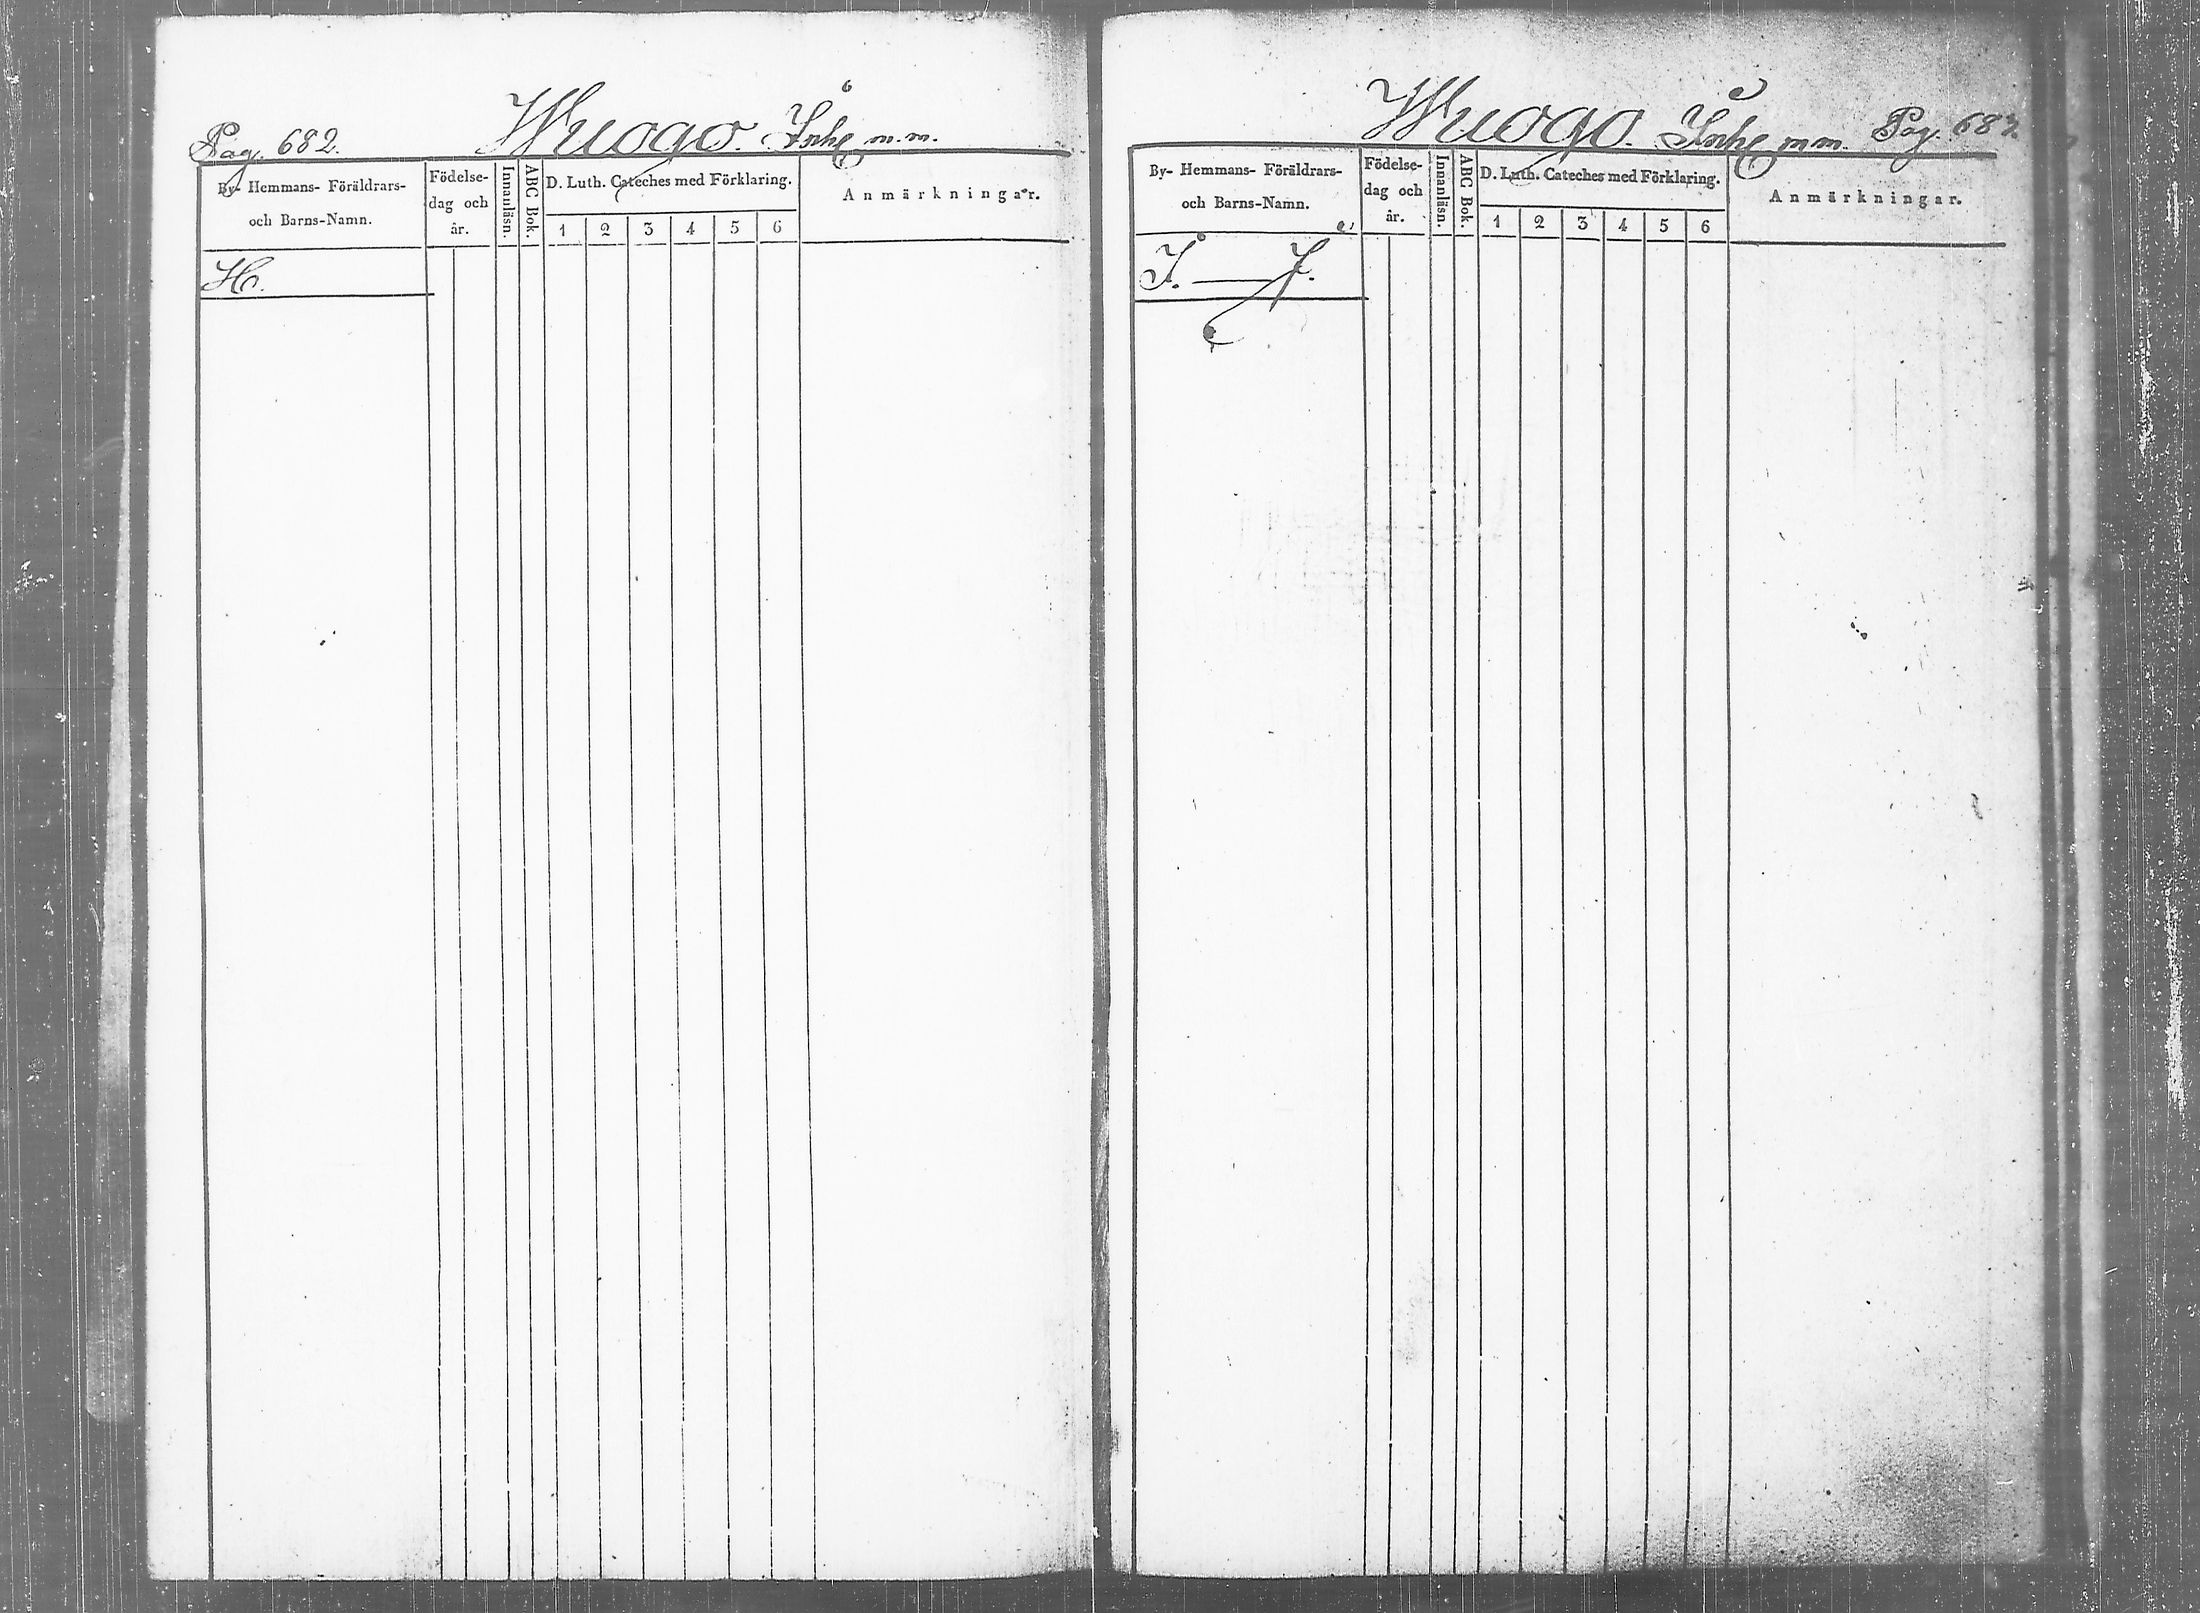 Pag. 682. Wuogo. Inhe m.m.
By- Hemmans- Föräldrars-
och Barns-Namn.
Födelse-
dag och
år.
Innanläsn.
ABC Bok.
D. Luth. Cateches med Förklaring.
1 2 3 4 5 6
Anmärkningar.
H.
Wuogo. Inhe m m. Pag. 683.
By- Hemmans- Föräldrars-
och Barns-Namn.
Födelse-
dag och
år.
Innanläsn.
ABC Bok.
D. Luth. Cateches med Förklaring.
1 2 3 4 5 6
Anmärkningar.
I. — J.